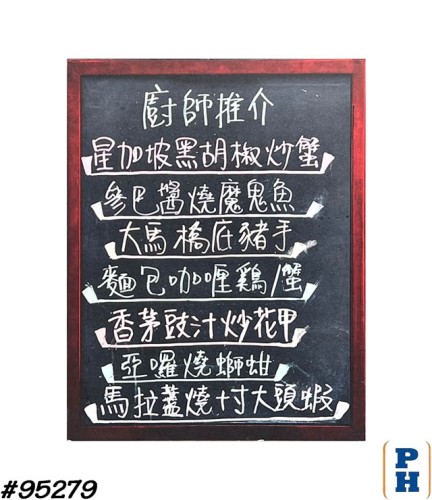 廚師推介
星加坡黑胡椒炒蟹
參巴醬燒魔鬼魚
大馬橋底豬手
麵包咖喱鷄/蟹
香茅豉汁炒花甲
亞囉燒螄蚶
馬拉盞燒十寸大頭蝦
#95279
PH